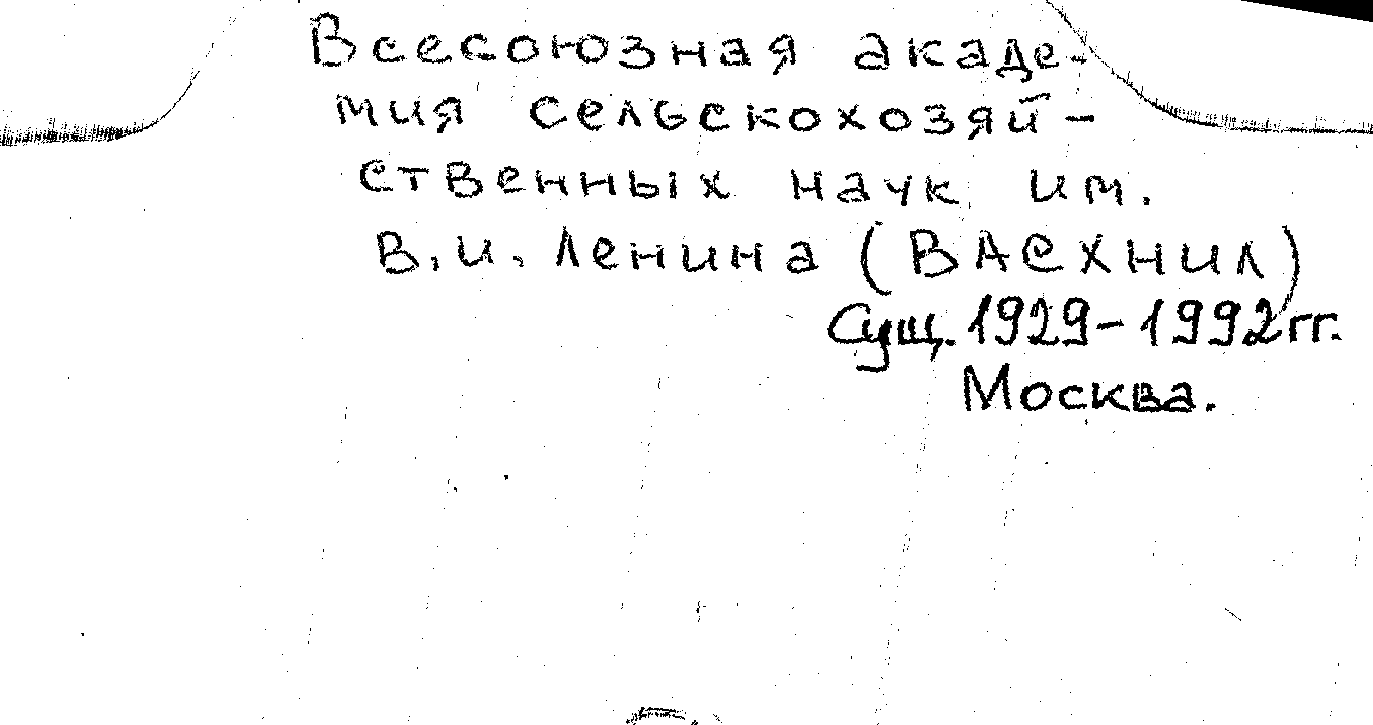 Всесоюзная акаде-
мия сельскохозяй-
ственных наук им.
В.И. Ленина (ВАСХНИЛ)
Сущ. 1929-1992 гг.
Москва.